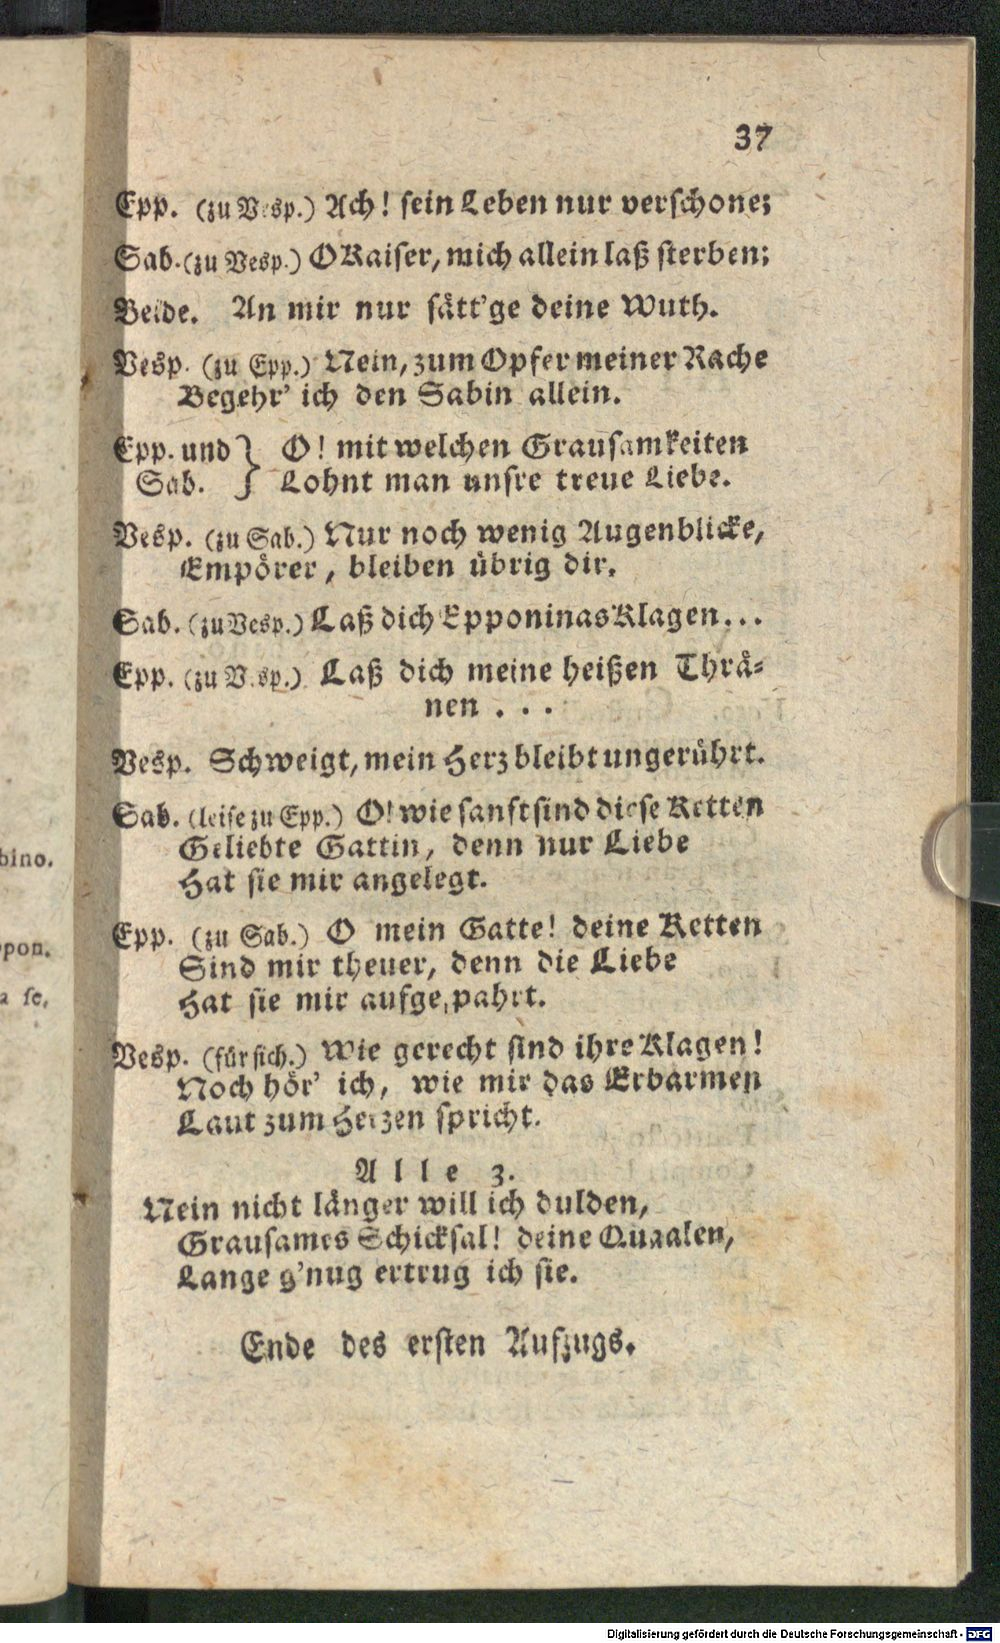 bino.
ppon.
a se,
37
Epp. (zu Vesp.) Ach! sein Leben nur verschone;
Sab. (zu Vesp.) O Kaiser, mich allein laß sterben;
Beide. An mir nur sätt'ge deine Wuth.
Vesp. (zu Epp.) Nein, zum Opfer meiner Rache
Begehr' ich den Sabin allein.
Epp. und } O! mit welchen Grausamkeiten
Sab. } Lohnt man unsre treue Liebe.
Vesp. (zu Sab.) Nur noch wenig Augenblicke,
Empörer, bleiben übrig dir.
Sab. (zu Vesp.) Laß dich Epponinas Klagen...
Epp. (zu Vesp.) Laß dich meine heißen Thrä-
nen . . .
Vesp. Schweigt, mein Herz bleibt ungerührt.
Sab. (leise zu Epp.) O! wie sanft sind diese Ketten
Geliebte Gattin, denn nur Liebe
Hat sie mir angelegt.
Epp. (zu Sab.) O mein Gatte! deine Ketten
Sind mir theuer, denn die Liebe
Hat sie mir aufgespahrt.
Vesp. (für sich.) Wie gerecht sind ihre Klagen!
Noch hör' ich, wie mir das Erbarmen
Laut zum Herzen spricht.
Alle 3.
Nein nicht länger will ich dulden,
Grausames Schicksal! deine Quaalen,
Lange g'nug ertrug ich sie.
Ende des ersten Aufzugs.
Digitalisierung gefördert durch die Deutsche Forschungsgemeinschaft - DFG